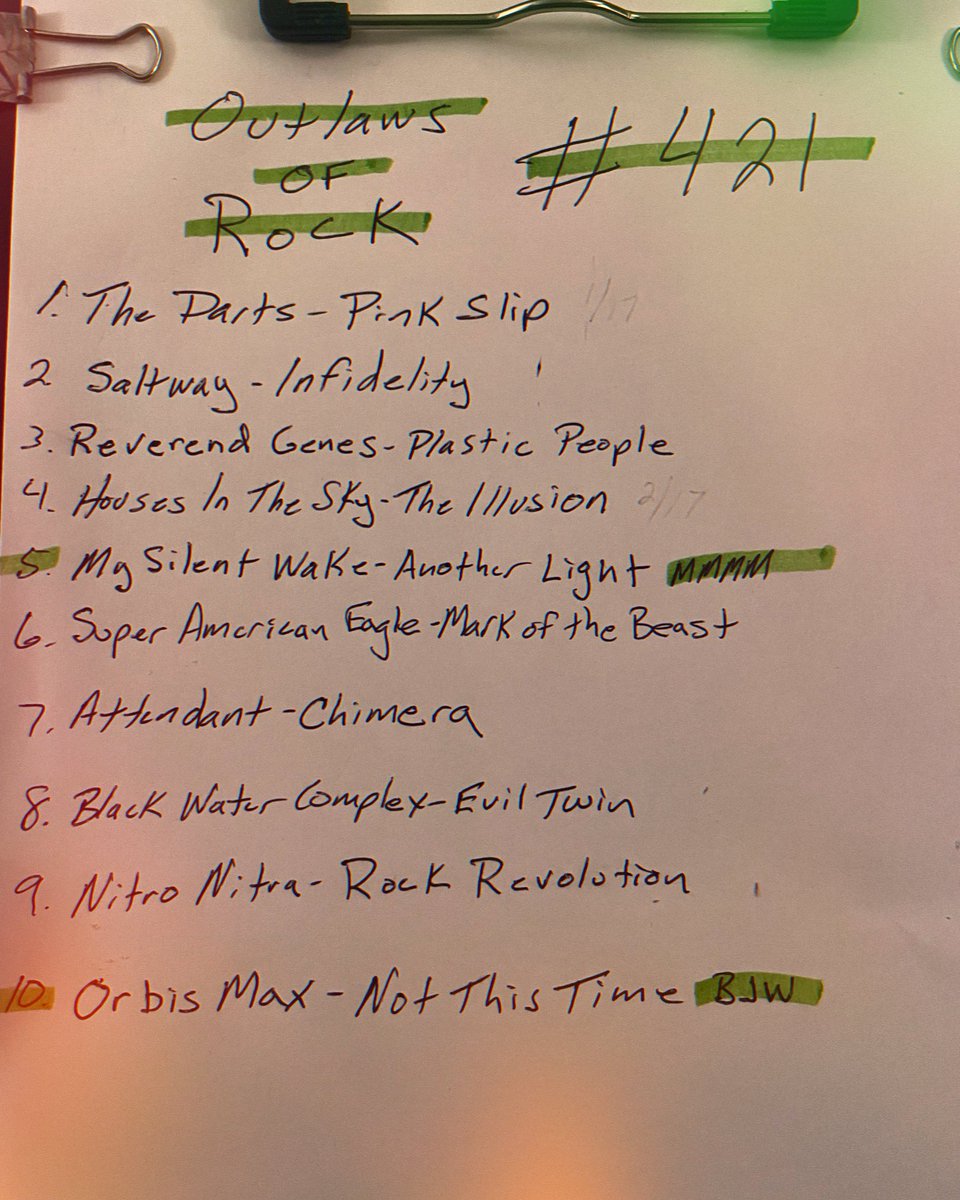 Outlaws
OF
Rock
#421
1. The Darts - Pink Slip 1/17
2 Saltway - Infidelity
3. Reverend Genes - Plastic People
4. Houses In The Sky - The Illusion 2/17
5. My Silent Wake - Another Light MMMM
6. Super American Eagle - Mark of the Beast
7. Attendant - Chimera
8. Black Water Complex - Evil Twin
9. Nitro Nitra - Rock Revolution
10. Orbis Max - Not This Time BJW